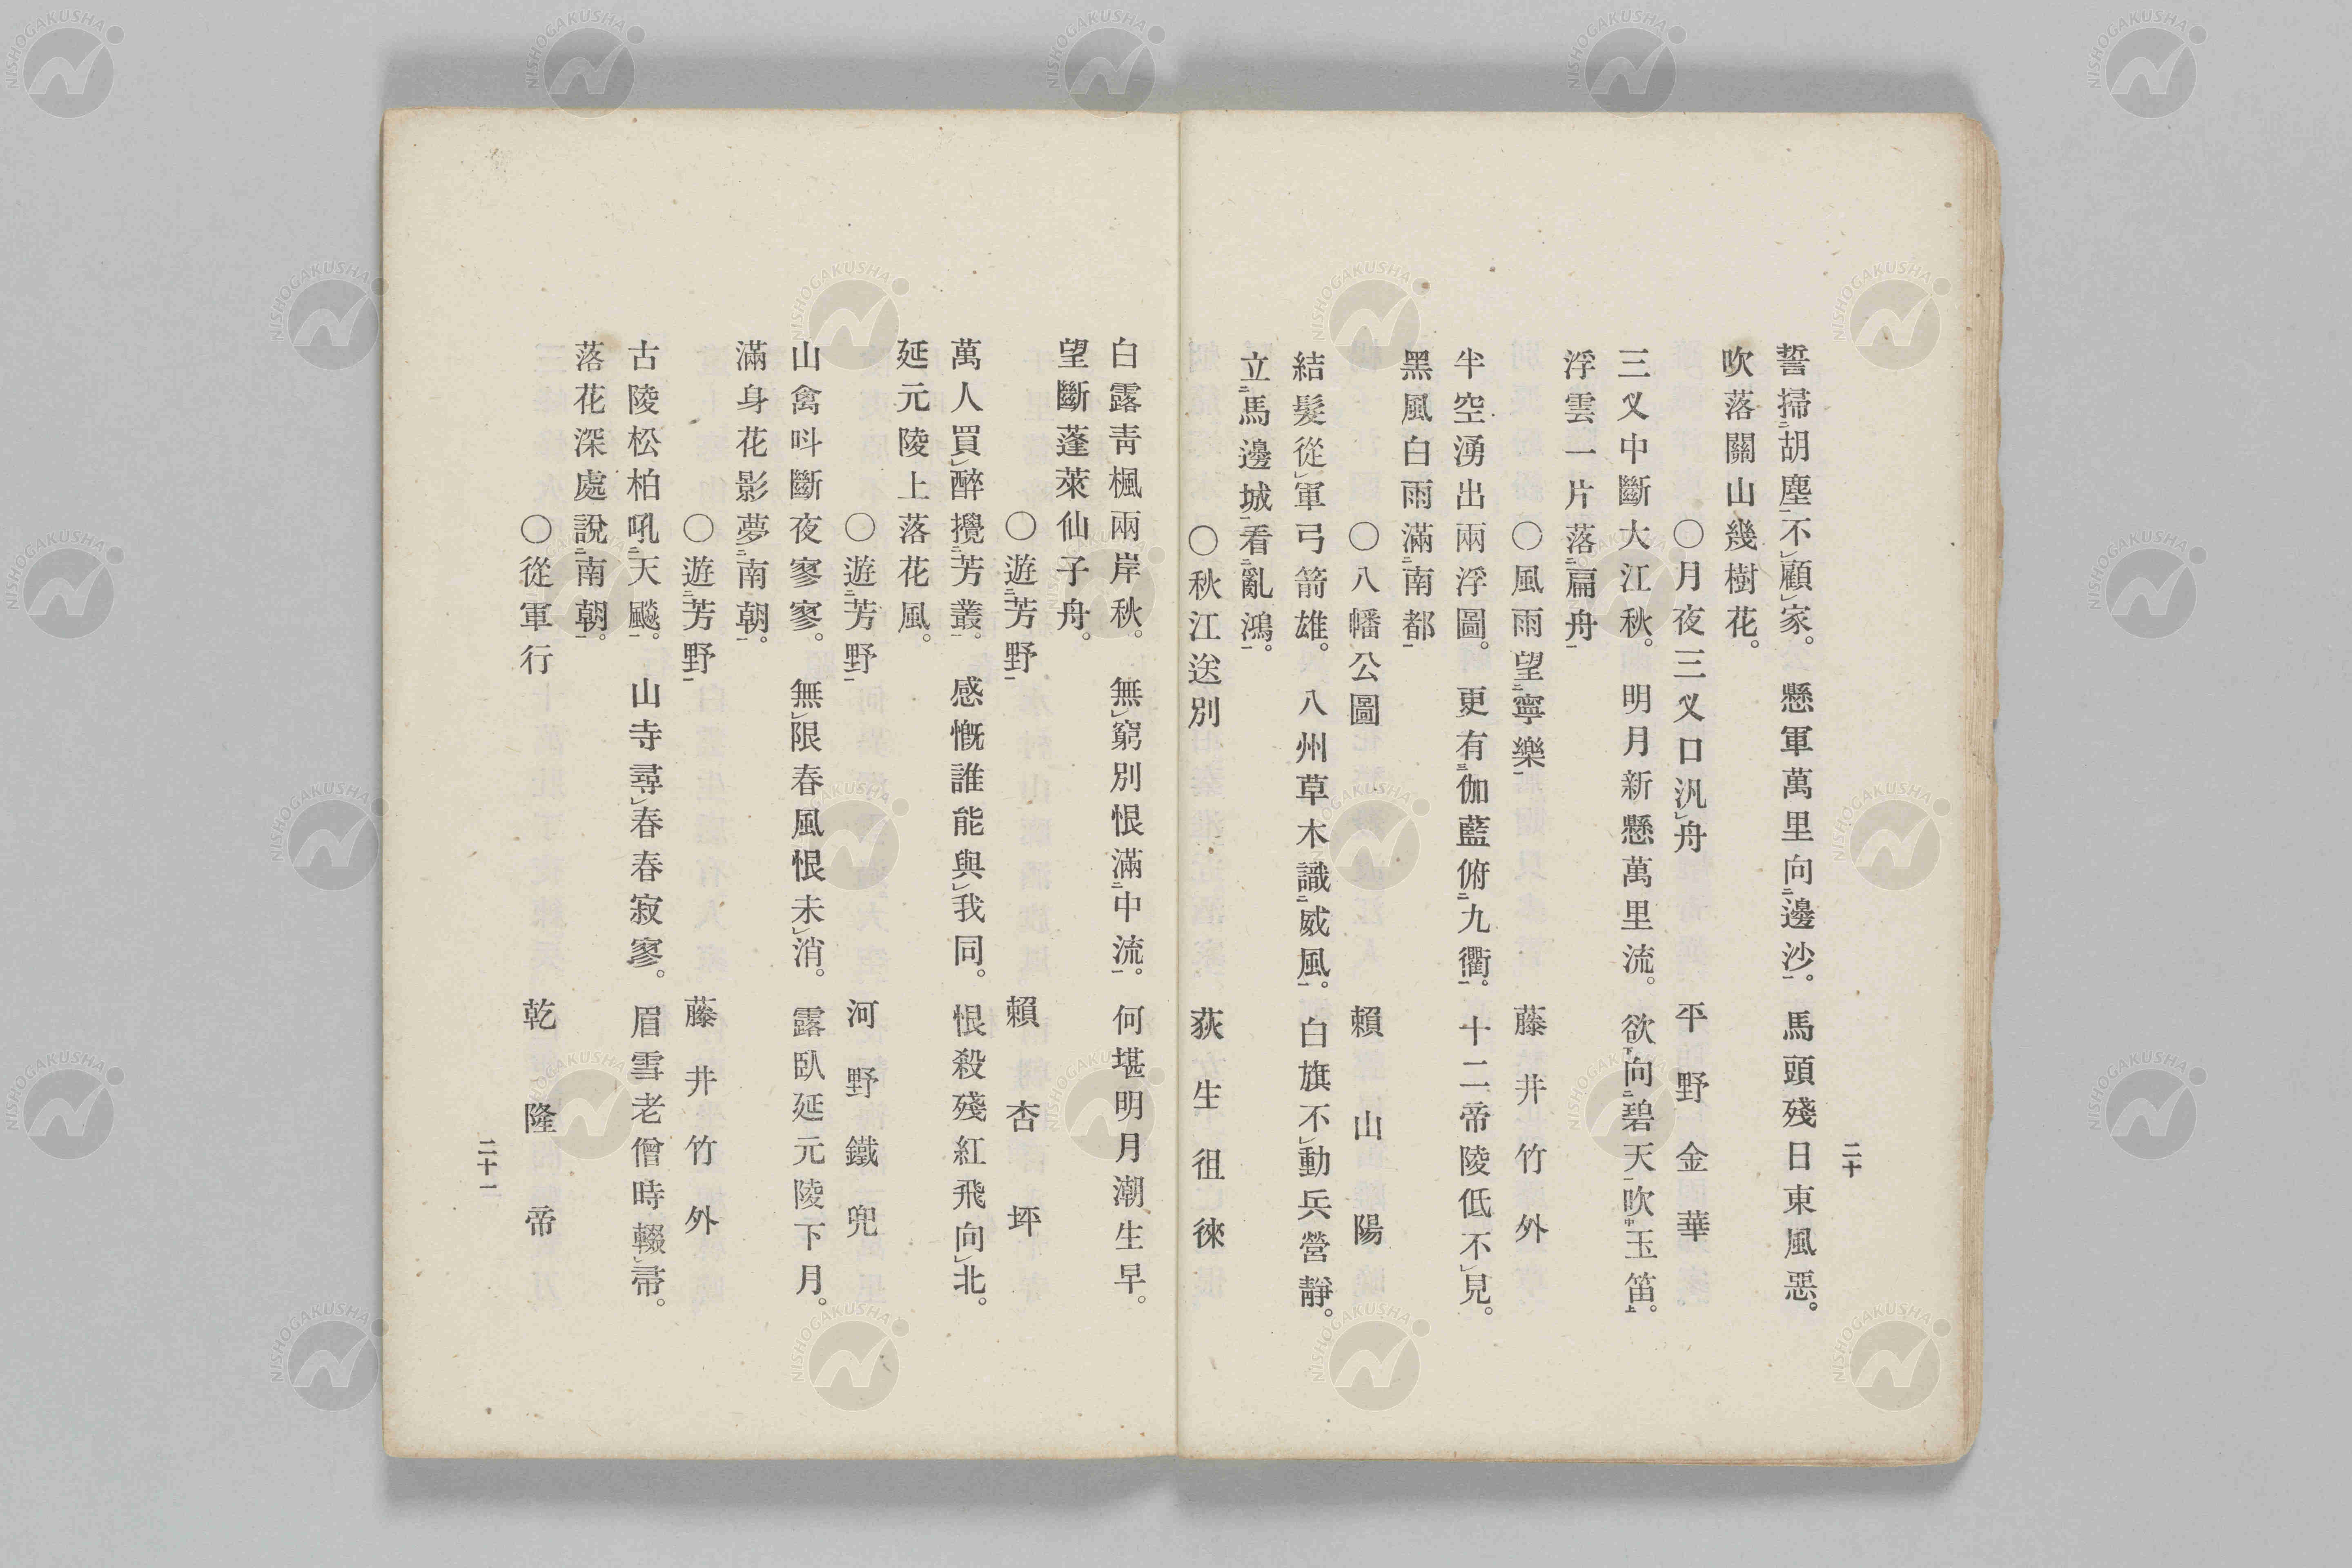 二十
誓掃㆓胡塵㆒不㆑顧㆑家。 懸軍萬里向㆓邊沙㆒。 馬頭殘日東風惡。
吹落關山幾樹花。
○月夜三叉口汎㆑舟 平野金華
三叉中斷大江秋。 明月新懸萬里流。 欲㆘向㆓碧天㆒吹㆗玉笛㆖。
浮雲一片落㆓扁舟㆒
○風雨望㆓寧樂㆒ 藤井竹外
半空湧出兩浮圖。 更有㆔伽藍俯㆓九衢㆒。 十二帝陵低不㆑見。
黑風白雨滿㆓南都㆒
○八幡公圖 賴山陽
結髮從㆑軍弓箭雄。 八州草木識㆓威風㆒。 白旗不㆑動兵營靜。
立㆓馬邊城㆒看㆓亂鴻㆒。
○秋江送別 荻生徂徠
白露靑楓兩岸秋。 無㆑窮別恨滿㆓中流㆒。 何堪明月潮生早。
望斷蓬萊仙子舟。
○遊㆓芳野㆒ 賴杏坪
萬人買㆑醉攪㆓芳叢㆒。 感慨誰能與㆑我同。 恨殺殘紅飛向㆑北。
延元陵上落花風。
○遊㆓芳野㆒ 河野鐵兜
山禽叫斷夜寥寥。 無㆑限春風恨未㆑消。 露臥延元陵下月。
滿身花影夢㆓南朝㆒。
○遊㆓芳野㆒ 藤井竹外
古陵松柏吼㆓天飈㆒。 山寺尋㆑春春寂寥。 眉雪老僧時輟㆑帚。
落花深處說㆓南朝㆒。
○從軍行 乾隆帝
二十一
NISHOGAKUSHA